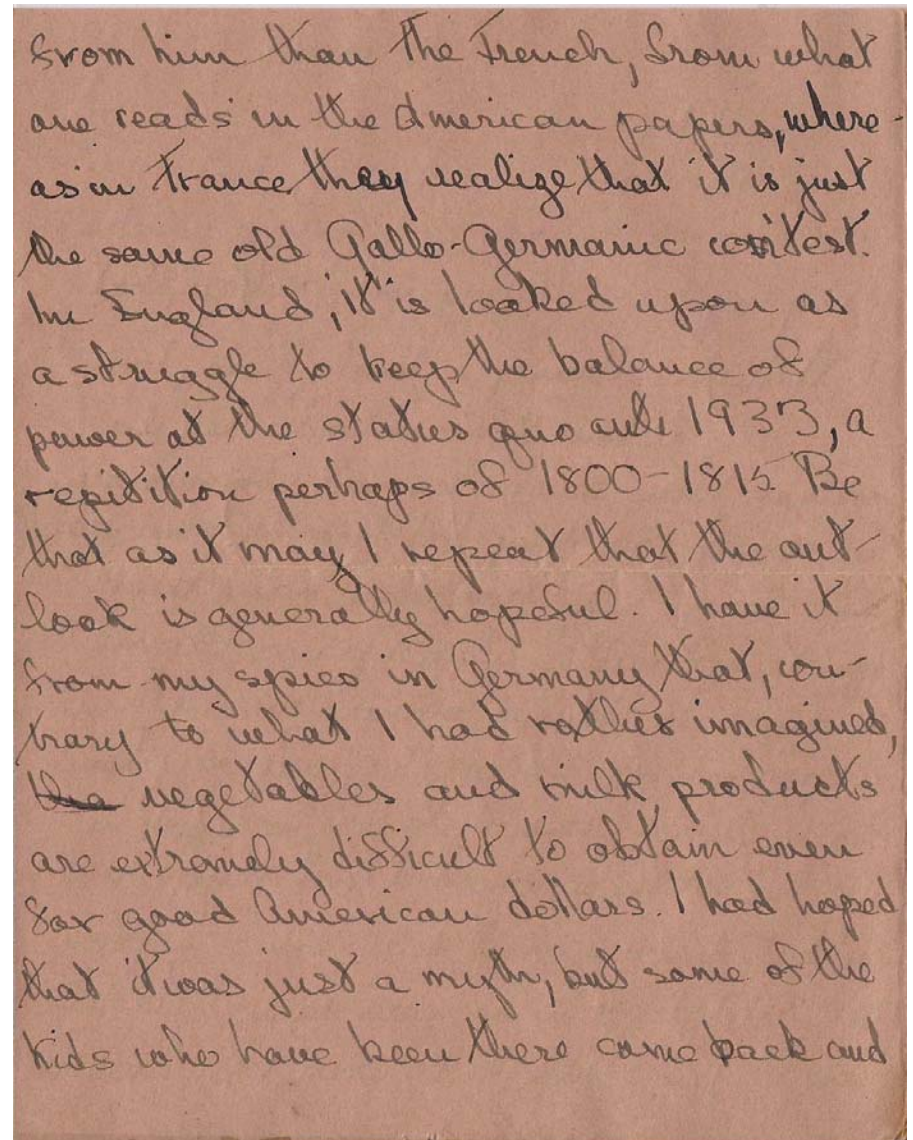 from him than the French, from what
one reads in the American papers, where-
as in France they realize that it is just
the same old Gallo-Germanic contest.
In England, it is looked upon as
a struggle to keep the balance of
power at the status quo ante 1933, a
repitition perhaps of 1800-1815. Be
that as it may, I repeat that the out-
look is generally hopeful. I have it
from my spies in Germany that, con-
trary to what I had rather imagined,
the vegetables and milk products
are extramely difficult to obtain even
for good American dollars. I had hoped
that it was just a myth, but some of the
kids who have been there come back and